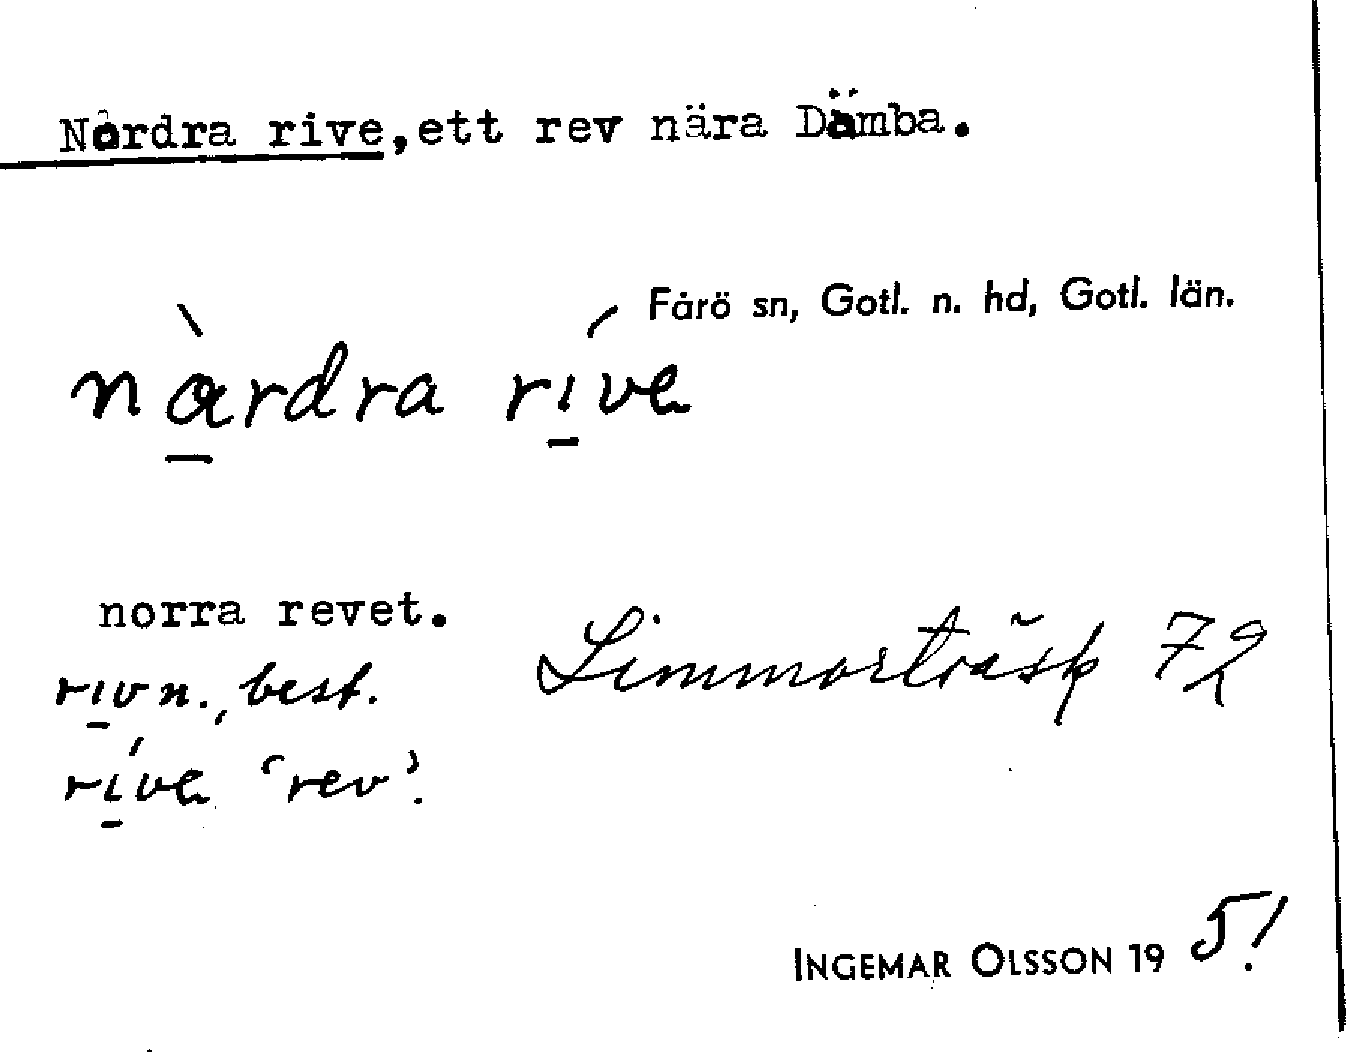 Nordra rive, ett rev nära Dämba.
Fårö sn, Gotl. n. hd, Gotl. län.
nàrdra ríve
norra revet.
rivn., best.
ríve 'rev'.
Limmorträsk 72
INGEMAR OLSSON 1951.